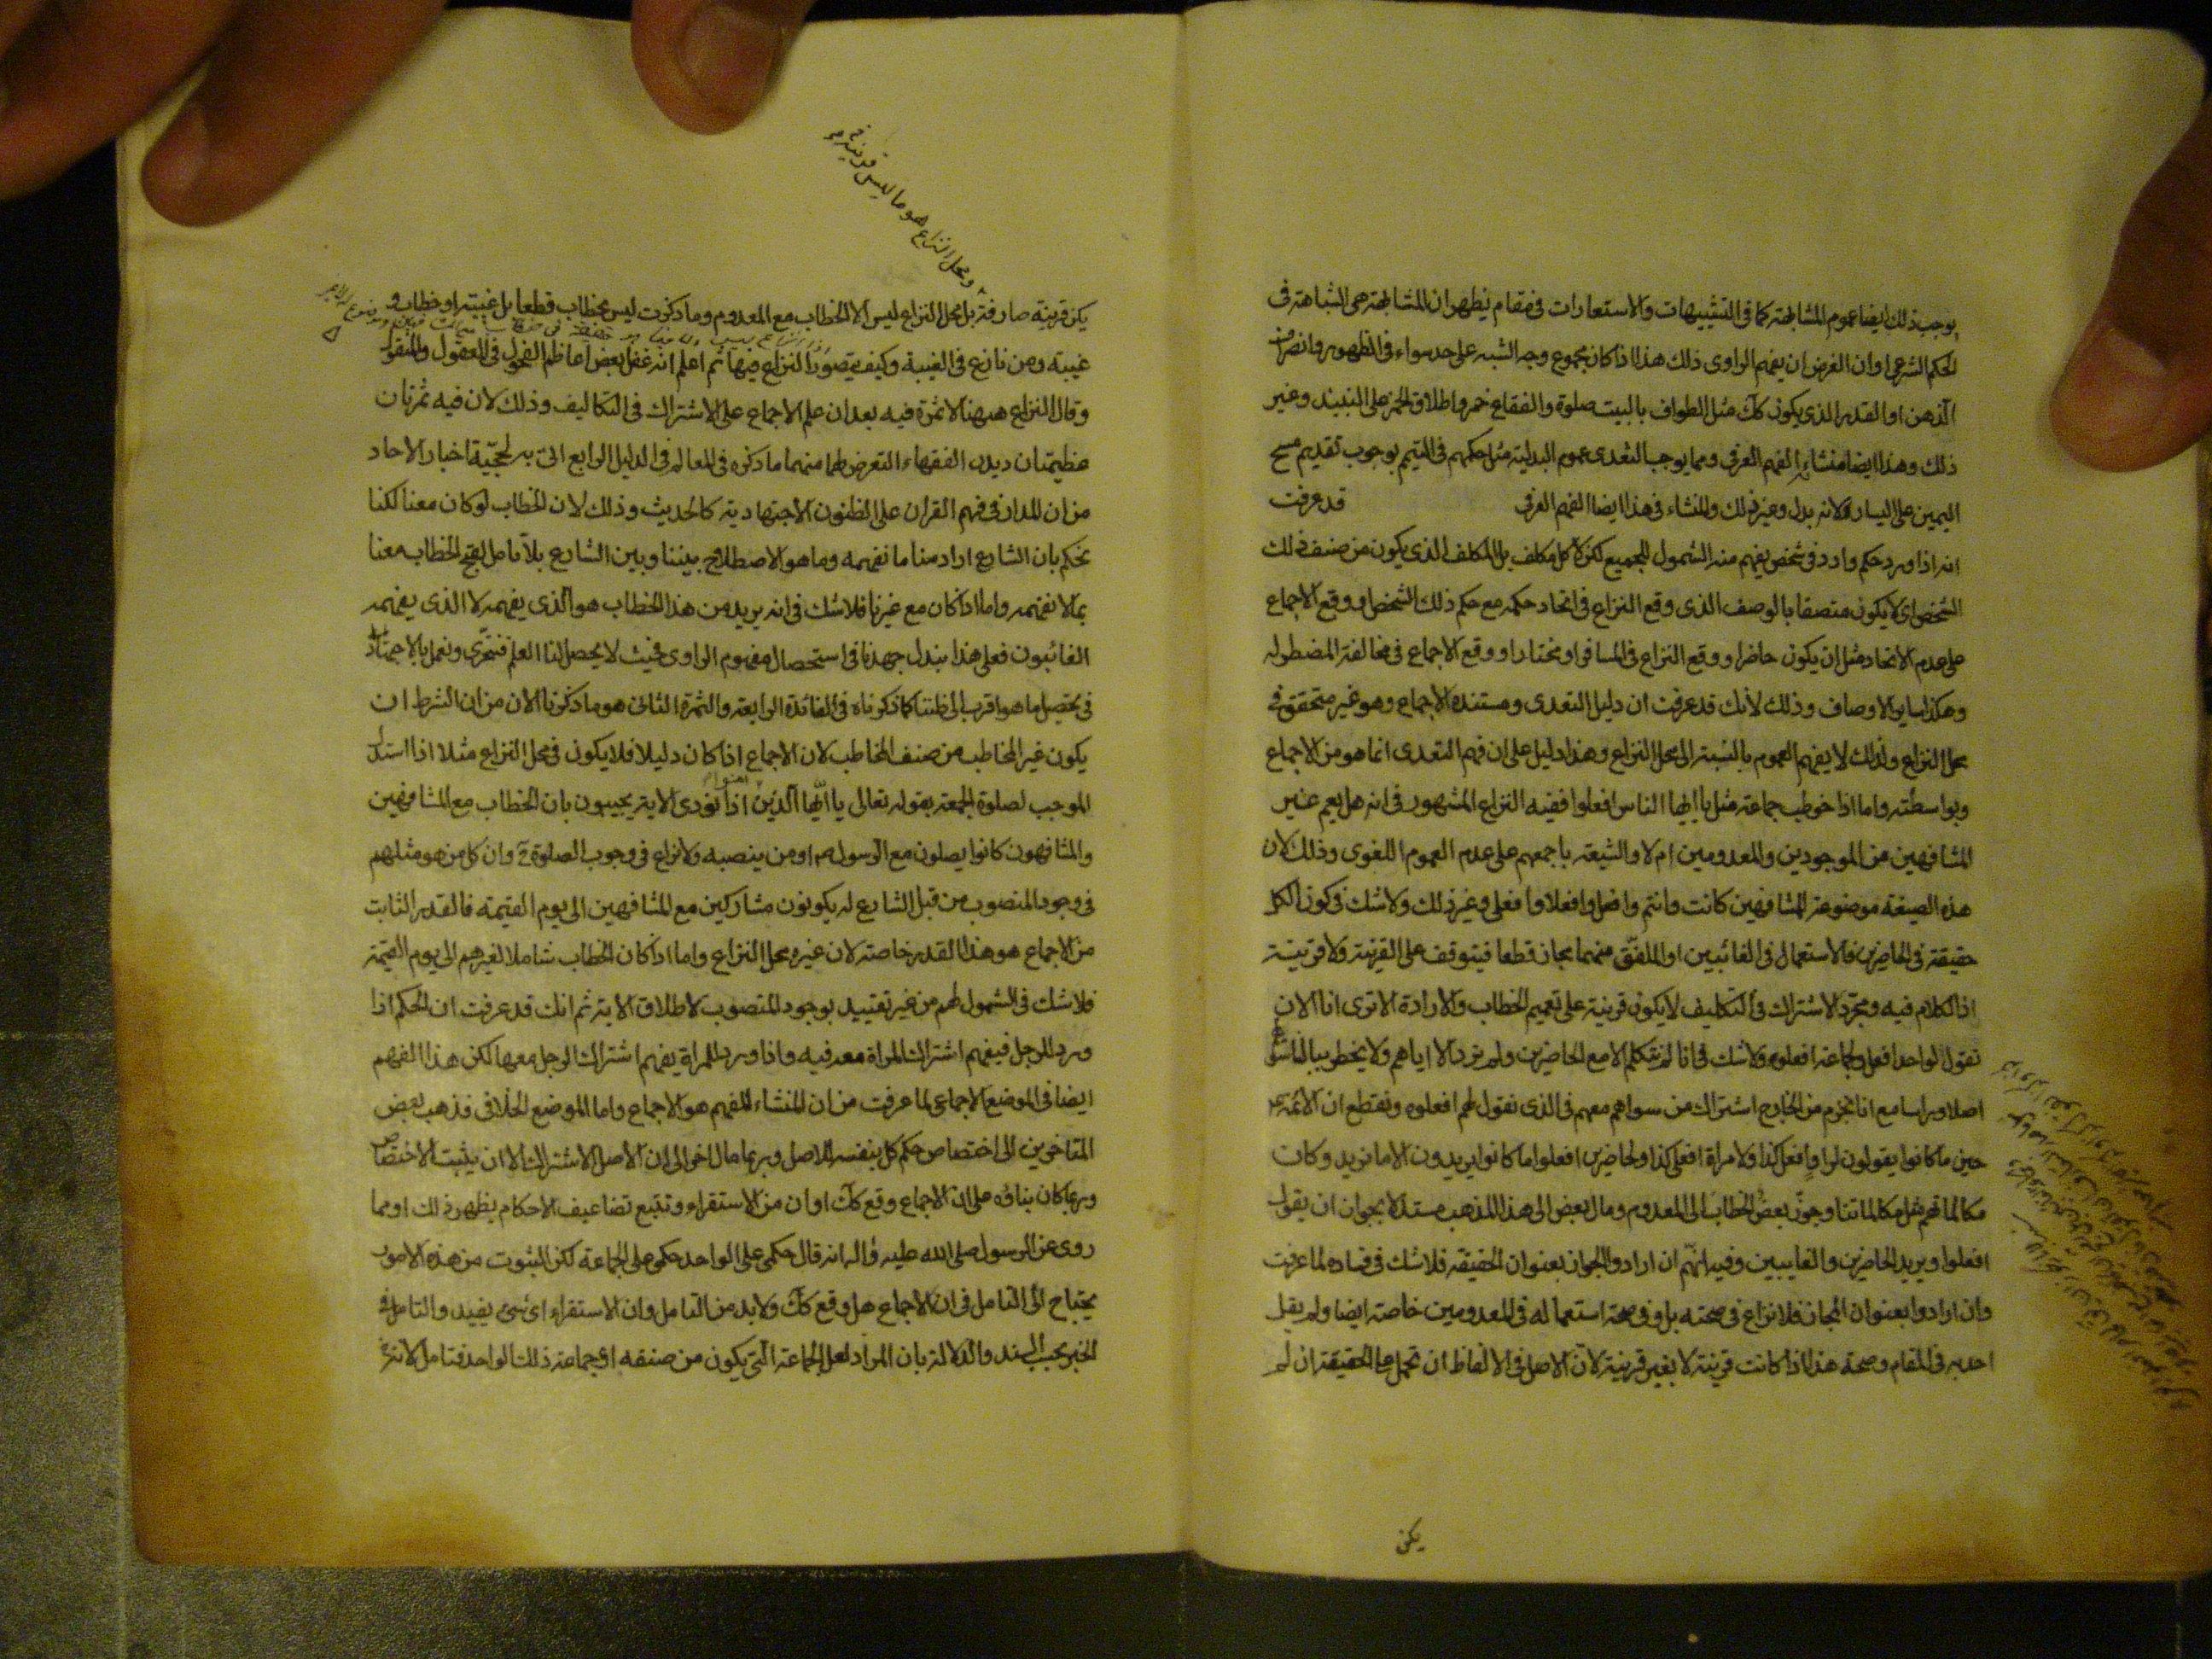 يوجب ذلك ايضا عموم المشابهة كما في التشبيهات والاستعارات في مقام يظهر ان المشابهة هي الشباهة في
الحكم الشرعي او ان الغرض ان يفهم الراوى ذلك هذا اذا كان مجموع وجه الشبه على حد سواء في الظهور وانصراف
الذهن او القدر الذى يكون كك مثل الطواف بالبيت صلوة والفقاع خمر واطلاق الخمر على النبيذ وغير
ذلك وهذا ايضا منشاء الفهم العرفى ومما يوجب التعدى عموم البدلية مثل حكمهم في التيمم بوجوب تقديم مسح
اليمين على اليسار لانه بدل وغير ذلك والمنشاء في هذا ايضا الفهم العرفى قد عرفت
انه اذا ورد حكم وارد في شخص يفهم منه الشمول للجميع لكن لا كل مكلف بل المكلف الذى يكون من صنف ذلك
الشخص اى لا يكون متصفا بالوصف الذى وقع النزاع في اتحاد حكمه مع حكم ذلك الشخص او وقع الاجماع
على عدم الاتحاد مثل ان يكون حاضرا ووقع النزاع في المسافر او مختارا ووقع الاجماع في مخالفة المضطر له
وهكذا ساير الاوصاف وذلك لانك قد عرفت ان دليل التعدى ومستنده الاجماع وهو غير متحقق في
محل النزاع ولذلك لا يفهم العموم بالنسبة الى محل النزاع وهذا دليل على ان فهم التعدى انما هو من الاجماع
وبواسطته واما اذا خوطب جماعة مثل يا ايها الناس افعلوا ففيه النزاع المشهور في انه هل يعم غير
المشافهين من الموجودين والمعدومين ام لا والشيعة باجمعهم على عدم العموم اللغوى وذلك لان
هذه الصيغة موضوعة للمشافهين كانت وانتم وافعل وافعلا وافعلى وغير ذلك ولا شك في كون الكل
حقيقة في الحاضرين فالاستعمال في الغائبين او الملفق منهما مجاز قطعا فيتوقف على القرينة ولا قرينة
اذ الكلام فيه ومجرد الاشتراك في التكليف لا يكون قرينة على تعميم الخطاب والارادة الا ترى انا الان
نقول لواحد افعل ولجماعة افعلوه ولا شك في انا لم نتكلم الا مع الحاضرين ولم نرد الا اياهم ولا يخطر ببالنا سواهم
اصلا وراسا مع انا نجزم من الخارج اشتراك من سواهم معهم في الذى نقول لهم افعلوه ونقطع ان الائمة ع
حين ما كانوا يقولون لراو افعل كذا ولامراة افعلى كذا ولحاضرين افعلوا ما كانوا يريدون الا ما نريد وكان
مكالماتهم مثل مكالماتنا وجوز بعض الخطاب الى المعدوم ومال بعض الى هذا المذهب مستدلا بجواز ان يقول
افعلوا ويريد الحاضرين والغايبين وفيه انهم ان ارادوا الجواز بعنوان الحقيقة فلا شك في فساده لما عرفت
وان ارادوا بعنوان المجاز فلا نزاع في صحته بل وفي صحة استعماله في المعدومين خاصة ايضا ولم يقل
احد به في المقام وصحة هذا اذا كانت قرينة لا بغير قرينة لان الاصل في الالفاظ ان تحمل على الحقيقة ان لم
يكن
ومحل النزاع هو ما ليس قرينة
يكن قرينة صارفة بل محل النزاع ليس الا الخطاب مع المعدوم وما ذكرت ليس بخطاب قطعا بل غيبة او خطاب و
غيبة ومن نازع في الغيبة وكيف يتصور النزاع فيها ثم اعلم انه غفل بعض اعاظم الفحول في المعقول والمنقول
وقال النزاع ههنا لا ثمرة فيه بعد ان علم الاجماع على الاشتراك في التكاليف وذلك لان فيه ثمرتان
عظيمتان ديدن الفقهاء التعرض لهما منهما ما ذكره في المعالم في الدليل الرابع الذي به لحجية اخبار الاحاد
من ان المدار في فهم القران على الظنون الاجتهادية كالحديث وذلك لان الخطاب لو كان معنا لكنا
نحكم بان الشارع اراد منا ما نفهمه وما هو الاصطلاح بيننا وبين الشارع بلا تامل لقبح الخطاب معنا
بما لا نفهمه واما اذا كان مع غيرنا فلا شك في انه يريد من هذا الخطاب هو الذى يفهمه لا الذى يفهمه
الغائبون فعلى هذا نبذل جهدنا في استحصال مفهوم الراوى فحيث لا يحصل لنا العلم فنتحرى ونعمل بالاجتهاد
في تحصيل ما هو اقرب الى ظننا كما ذكرناه في الفائدة الرابعة والثمرة الثانى هو ما ذكرنا الان من ان الشرط ان
يكون غير المخاطب من صنف المخاطب لان الاجماع اذا كان دليلا فلا يكون في محل النزاع مثلا اذا استدل
الموجب لصلوة الجمعة بقوله تعالى يا ايها الذين امنوا اذا نودى الاية يجيبون بان الخطاب مع المشافهين
والمشافهون كانوا يصلون مع الرسول ص او من ينصبه ولا نزاع في وجوب الصلوة ح وان كل من هو مثلهم
في وجود المنصوب من قبل الشارع له يكونون مشاركين مع المشافهين الى يوم القيمة فالقدر الثابت
من الاجماع هو هذا القدر خاصة لان غيره محل النزاع واما اذا كان الخطاب شاملا لغيرهم الى يوم القيمة
فلا شك في الشمول لهم من غير تقييد بوجود المنصوب لاطلاق الاية ثم انك قد عرفت ان الحكم اذا
ورد للرجل فيفهم اشتراك المراة معه فيه واذا ورد للمراة يفهم اشتراك الرجل معها لكن هذا الفهم
ايضا في الموضع الاجماعى لما عرفت من ان المنشاء للفهم هو الاجماع واما الموضع الخلافى فذهب بعض
المتاخرين الى اختصاص حكم كل بنفسه للاصل وربما مال اخر الى ان الاصل الاشتراك الا ان يثبت الاختصاص
وربما كان بناؤه على ان الاجماع وقع كك او ان من الاستقراء وتتبع تضاعيف الاحكام يظهر ذلك او مما
روى عن الرسول صلى الله عليه واله انه قال حكمى على الواحد حكمى على الجماعة لكن الثبوت من هذه الامور
يحتاج الى التامل في ان الاجماع هل وقع كك ولا بد من التامل وان الاستقراء اى شىء يفيد والتامل في
الخبر بحسب السند والدلالة بان المراد لعل الجماعة التى يكون من صنفه اى جماعة ذلك الواحد فتامل لانه